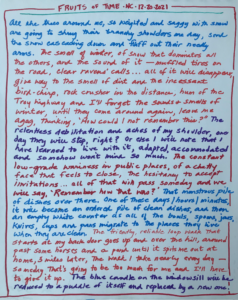 FRUITS OF TIME · NC · 12·20·2021
All the trees around me, so weighted and saggy with snow
are going to shrug their sneaky shoulders one day, send
the snow cascading down and fluff out their needly
arms. The smell of winter, of snow that dominates all
the others, and the sound of it — muffled tires on
the road, clear ravens' calls... all of it will disappear,
give way to the smell of dirt and the incessant
bird-chirp, rock crusher in the distance, hum of the
Troy highway and I'll forget the sounds + smells of
winter until they come around again, leave me
agog, thinking, "How could I not remember this?" The
relentless debilitation and aches of my shoulder, one
day they will stop, right? Or else I will note that I
have learned to live with it, adapted, accommodated
and somehow won't mind so much. The constant
low-grade uneasiness in public places, of a chatty
face that feels to close, the hesitancy to accept
invitations... all of that will pass someday and we
will say, "Remember how that was?" That monstrous pile
of dishes over there. One of these days/hours/minutes,
it will become an ordered pile of clean dishes, and then
an empty white counter as all of the bowls, spoons, jars,
knives, cups and pans migrate to the places they live
when they are clean. The friendly, reliable loop walk that
starts at my back door goes up and over the hill, around
past some horses and a pond until it spits me out at
home, 3 miles later. The walk I take nearly every day —
someday that's going to be too much for me and I'll have
to give it up. The blue candle on the windowsill will be
reduced to a puddle of itself and replaced by a new one.